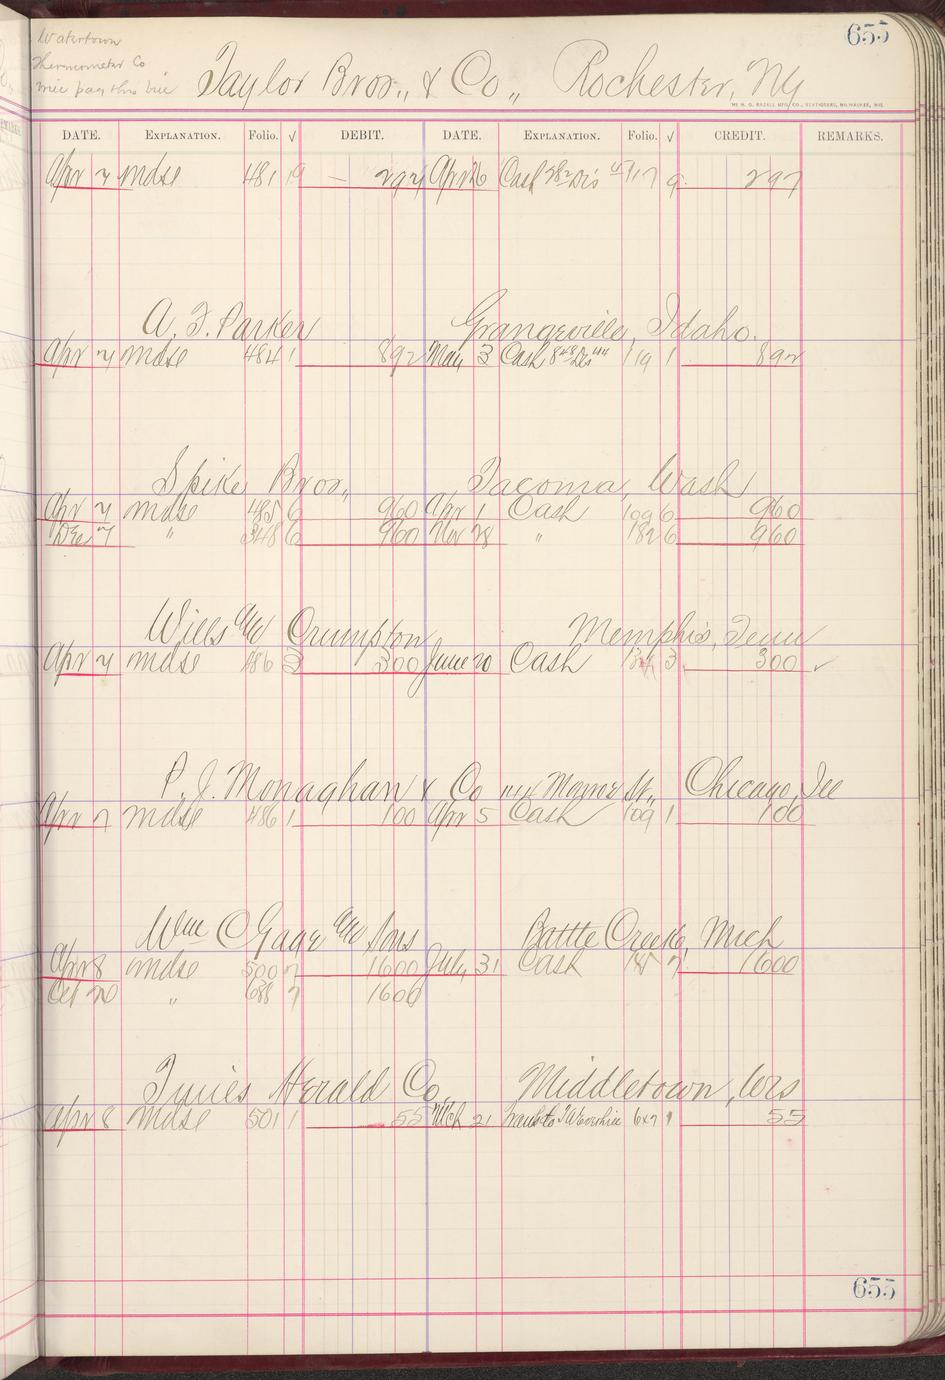 655
Watertown
Thermometer Co
will pay this bill
Taylor Bros., & Co., Rochester, NY
DATE. EXPLANATION. Folio. √ DEBIT. DATE. EXPLANATION. Folio. √ CREDIT. REMARKS.
Apr 7 mdse 481 297 Apr 26 Cash Dis 117 9 297
A. F. Parker Grangeville, Idaho.
Apr 7 mdse 484 1 892 May 3 Cash 848 Dis 44 119 1 892
Spike Bros., Tacoma, Wash
Apr 7 mdse 485 6 960 Apr 1 Cash 109 6 960
Dec 7 " 348 6 960 Nov 28 " 182 6 960
Wills and Crumpton Memphis, Tenn
Apr 7 mdse 486 3 300 June 20 Cash 134 3 300 ✓
P. J. Monaghan & Co Monroe St., Chicago, Ill
Apr 7 mdse 486 1 100 Apr 5 Cash 109 1 100
Wm C Gage and Sons Battle Creek, Mich
Apr 8 mdse 500 7 1600 July 31 Cash 7 1600
Oct 20 " 688 7 1600
Times Herald Co, Middletown,
Apr 8 mdse 501 1 55 Mch 21 627 1 55
655